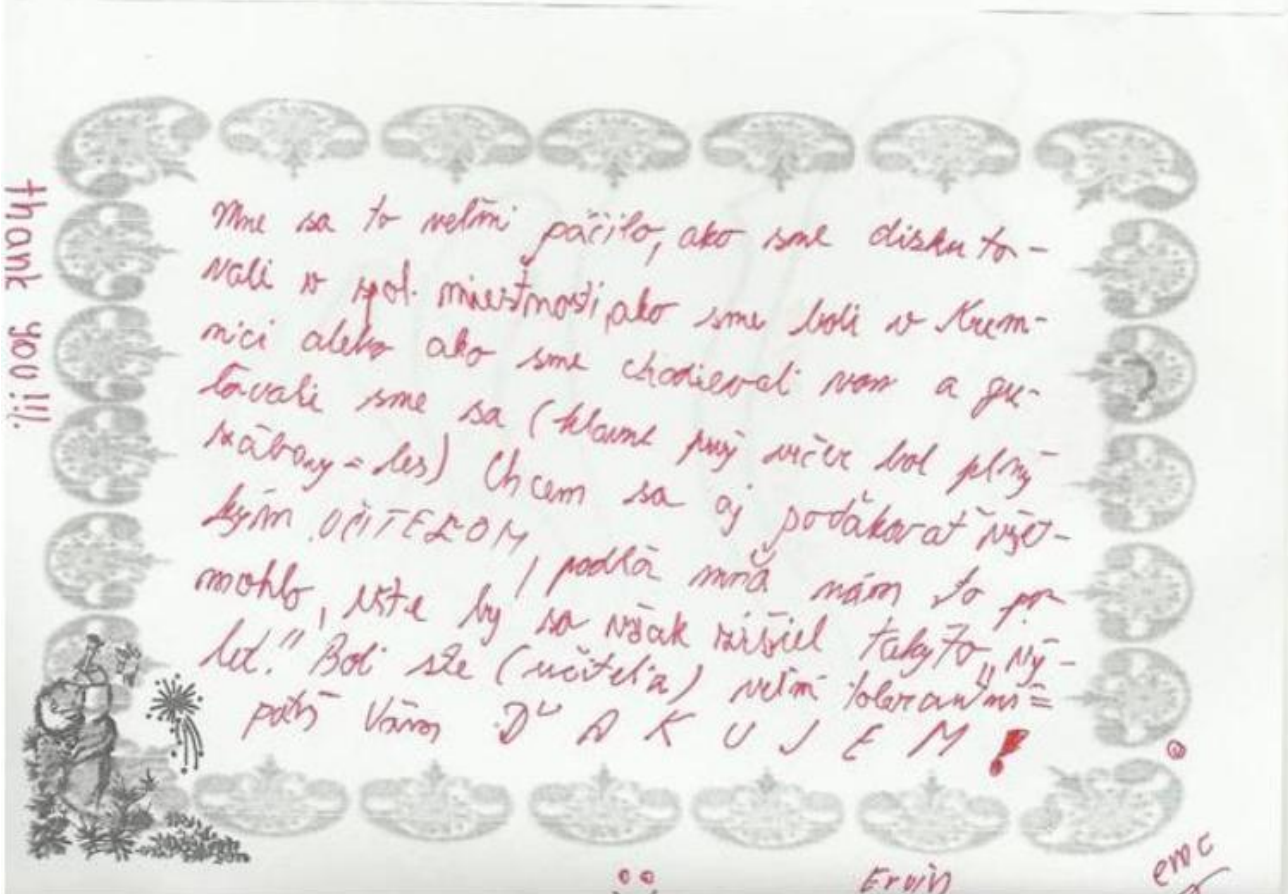 Mne sa to veľmi páčilo, ako sme diskuto-
vali v spol. miestnosti, ako sme boli v Krem-
nici alebo ako sme chodievali von a gu-
ľovali sme sa (hlavne prvý večer bol plný
zábavy = les) Chcem sa aj poďakovať všet-
kým UČITEĽOM, podľa mňa nám to po-
mohlo, ešte by sa však zišiel takýto „vý-
let." Boli ste (učitelia) veľmi tolerantní =
patrí Vám ĎAKUJEM!
thank you!!!
Ervín
emc